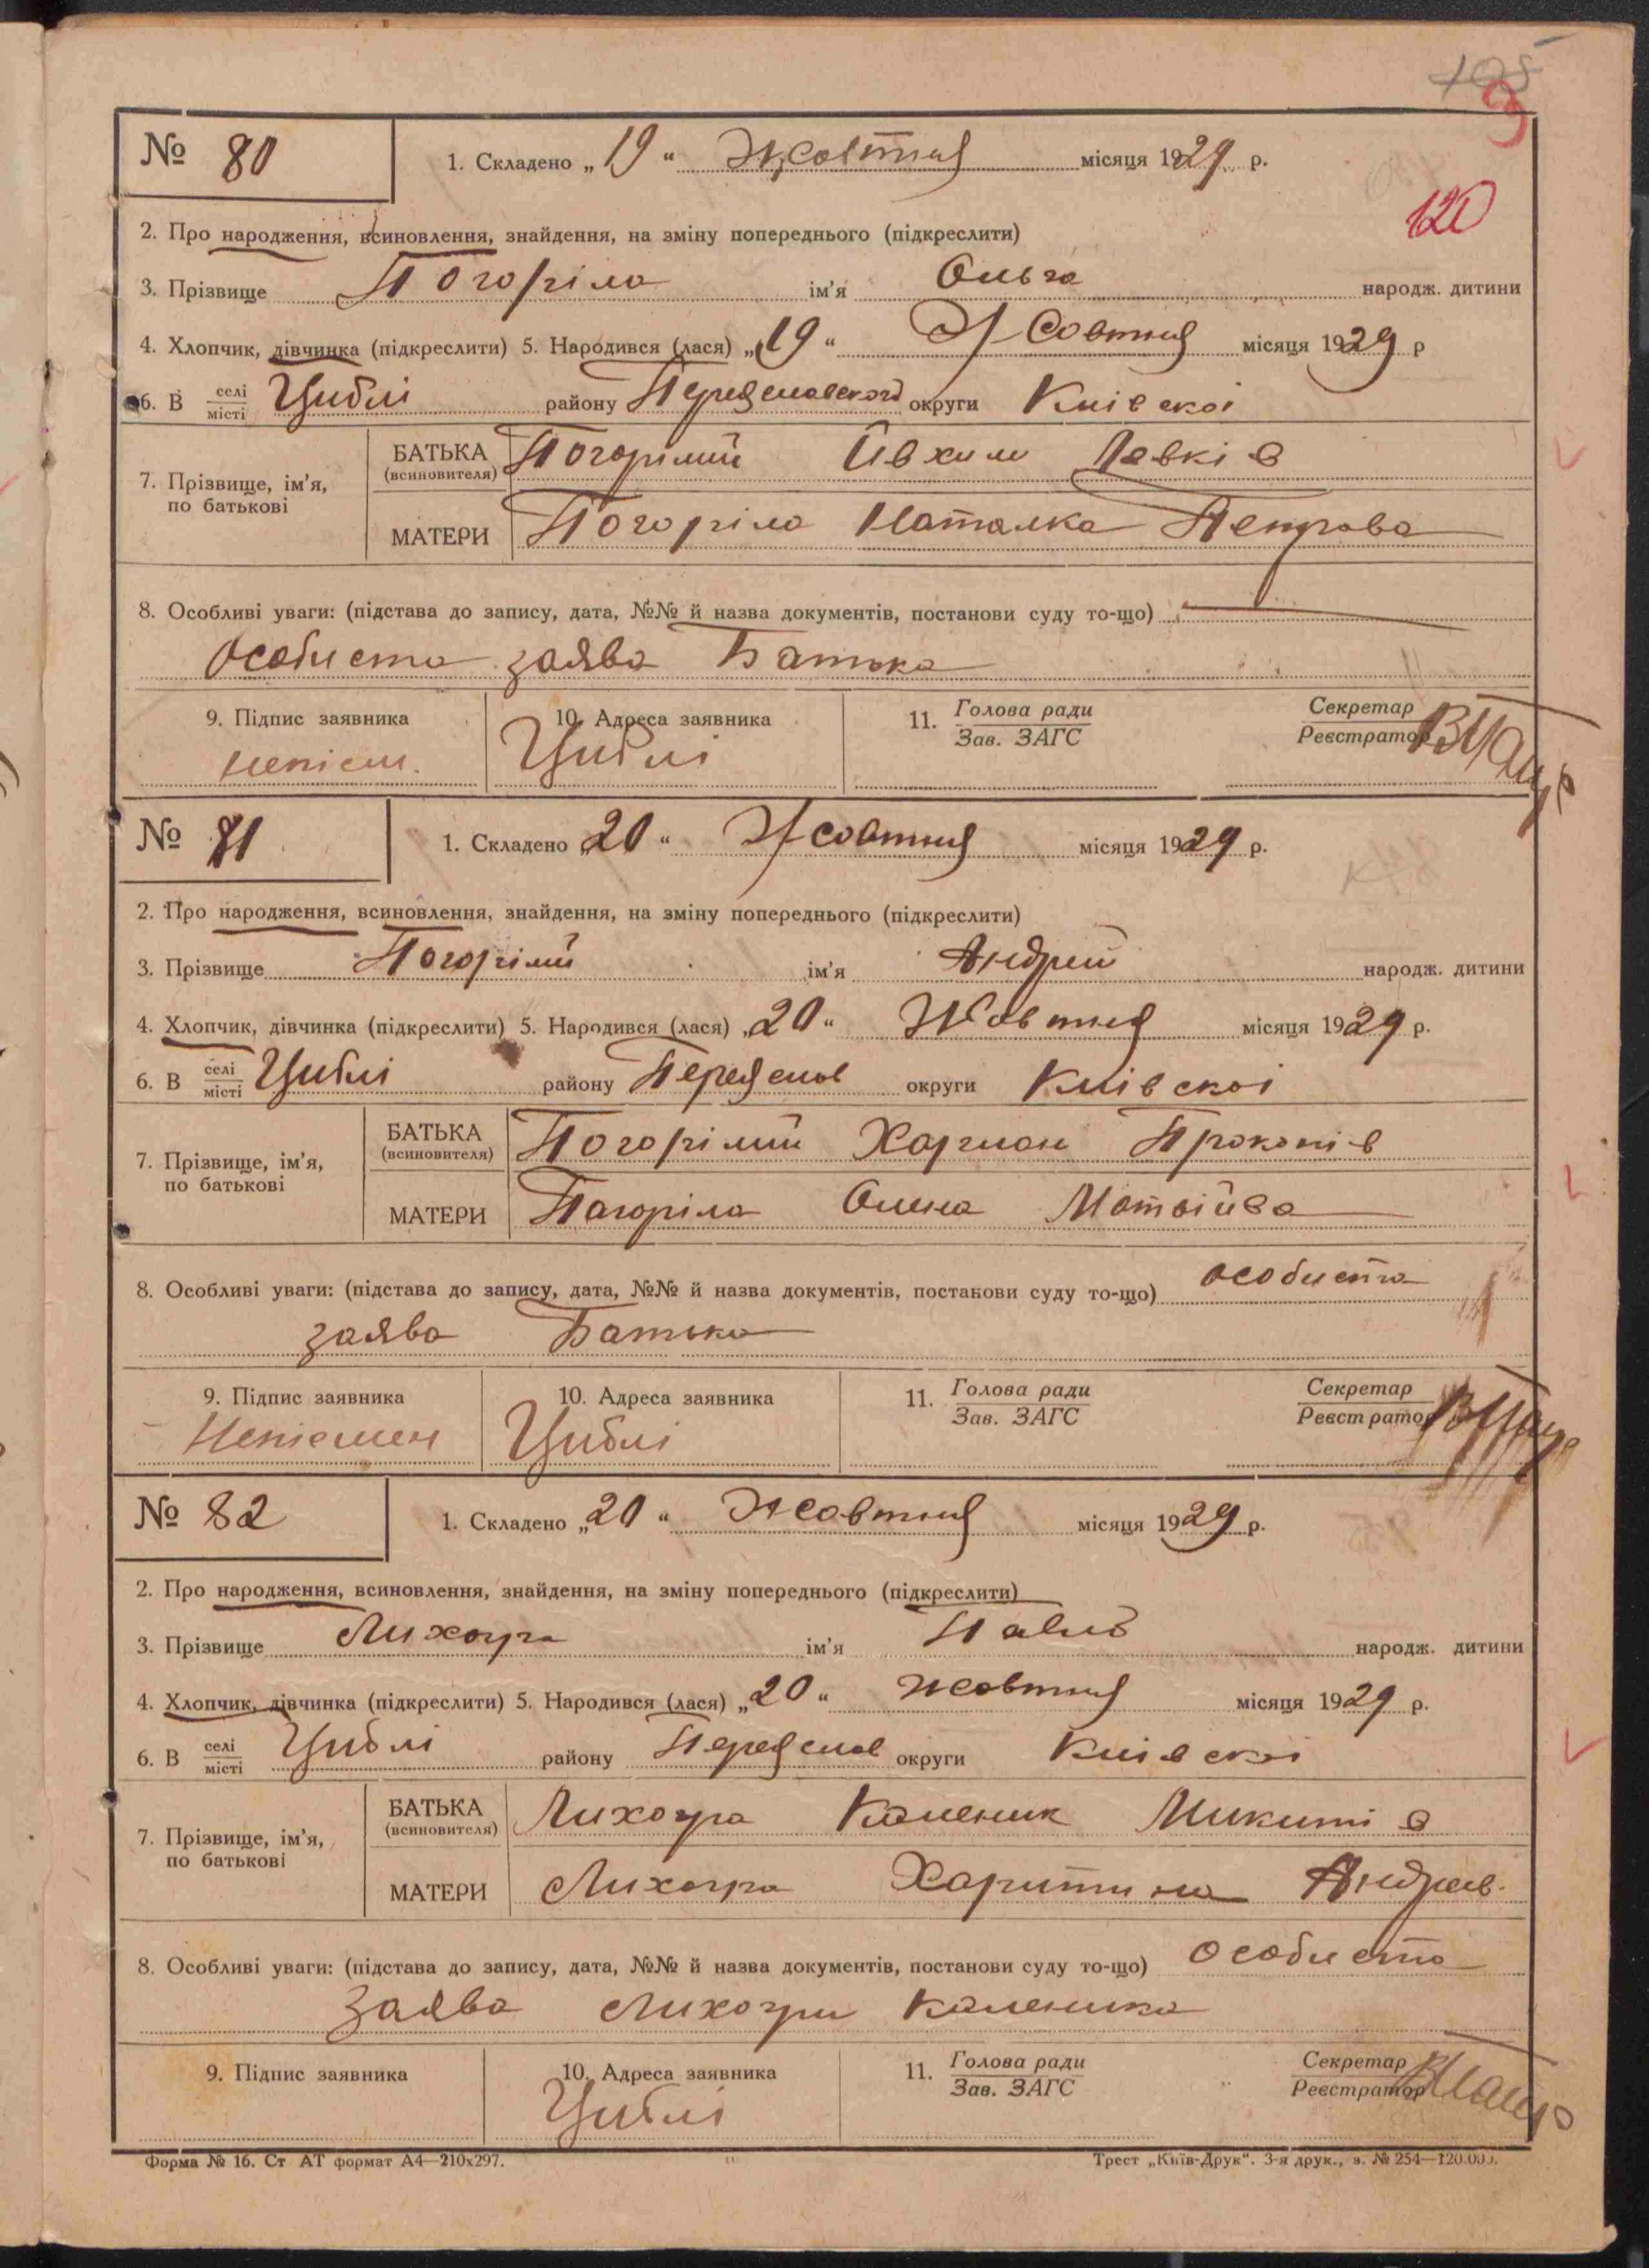 105
120
№ 80
1. Складено „19“ Жовтня місяця 1929 р.
2. Про народження, всиновлення, знайдення, на зміну попереднього (підкреслити)
3. Прізвище Погоріла ім'я Ольга народж. дитини
4. Хлопчик, дівчинка (підкреслити) 5. Народився (лася) „19“ Жовтня місяця 1929 р
6. В селі місті Циблі району Переяславского округи Киівскоі
7. Прізвище, ім'я, по батькові
БАТЬКА (всиновителя) Погорілий Йвхим Левків
МАТЕРИ Погоріла Наталка Петрова
8. Особливі уваги: (підстава до запису, дата, №№ й назва документів, постанови суду то-що)
особиста заява Батька
9. Підпис заявника 10. Адреса заявника 11. Голова ради Зав. ЗАГС Секретар Реєстратор
непісм. Циблі
№ 81
1. Складено „20“ Жовтня місяця 1929 р.
2. Про народження, всиновлення, знайдення, на зміну попереднього (підкреслити)
3. Прізвище Погорілий ім'я Андрий народж. дитини
4. Хлопчик, дівчинка (підкреслити) 5. Народився (лася) „20“ Жовтня місяця 1929 р.
6. В селі місті Циблі району Переяслов округи Киівскоі
7. Прізвище, ім'я, по батькові
БАТЬКА (всиновителя) Погорілий Харпон Прокопів
МАТЕРИ Погоріла Олена Матвійва
8. Особливі уваги: (підстава до запису, дата, №№ й назва документів, постанови суду то-що) особиста
заява Батька
9. Підпис заявника 10. Адреса заявника 11. Голова ради Зав. ЗАГС Секретар Реєстратор
Непісмен Циблі
№ 82
1. Складено „20“ Жовтня місяця 1929 р.
2. Про народження, всиновлення, знайдення, на зміну попереднього (підкреслити)
3. Прізвище Лихогра ім'я Павло народж. дитини
4. Хлопчик, дівчинка (підкреслити) 5. Народився (лася) „20“ жовтня місяця 1929 р.
6. В селі місті Циблі району Переяслов округи Киівскоі
7. Прізвище, ім'я, по батькові
БАТЬКА (всиновителя) Лихогра Каленик Микитів
МАТЕРИ Лихогра Харитина Андреів.
8. Особливі уваги: (підстава до запису, дата, №№ й назва документів, постанови суду то-що) особиста
заява Лихогри Каленика
9. Підпис заявника 10. Адреса заявника 11. Голова ради Зав. ЗАГС Секретар Реєстратор
Циблі
Форма № 16. Ст АТ формат А4—210х297. Трест „Київ-Друк“. 3-я друк., з. № 254—120.000.